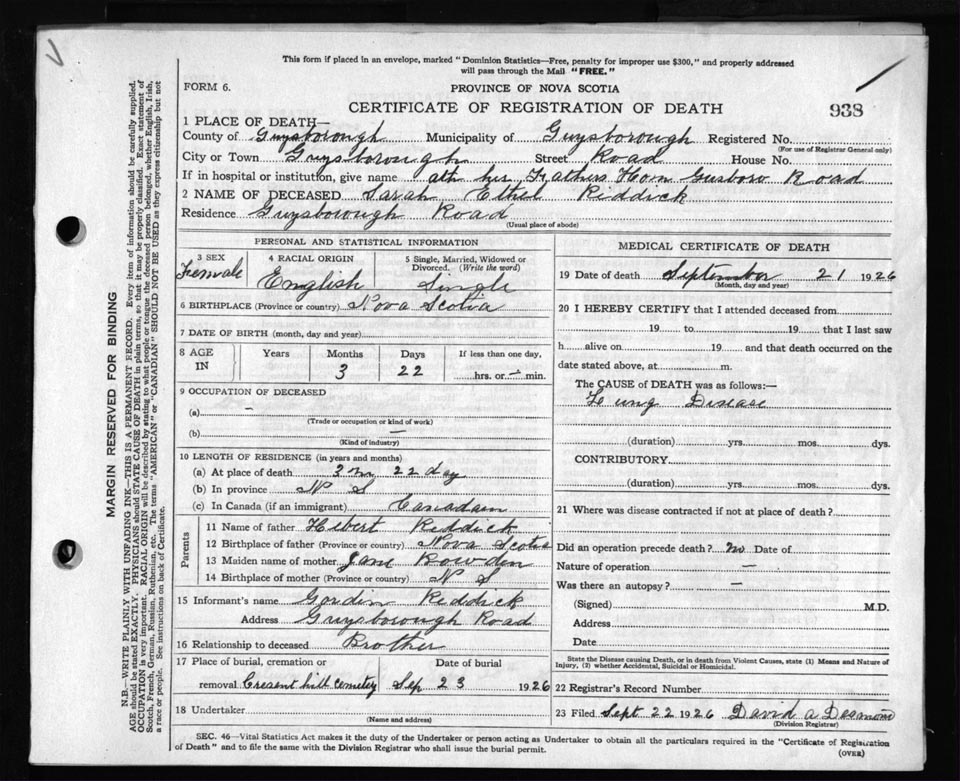 This form if placed in an envelope, marked "Dominion Statistics—Free, penalty for improper use $300," and properly addressed
will pass through the Mail "FREE."
FORM 6.
PROVINCE OF NOVA SCOTIA
CERTIFICATE OF REGISTRATION OF DEATH
938
1 PLACE OF DEATH—
County of Guysborough Municipality of Guysborough Registered No.
(For use of Registrar General only)
City or Town Guysborough Street Road House No.
If in hospital or institution, give name ath her Fathers Hom Gusboro Road
2 NAME OF DECEASED Sarah Ethel Riddick
Residence Guysborough Road
(Usual place of abode)
PERSONAL AND STATISTICAL INFORMATION
3 SEX 4 RACIAL ORIGIN 5 Single, Married, Widowed or
Divorced. (Write the word)
Femals English Single
6 BIRTHPLACE (Province or country) Nova Scotia
7 DATE OF BIRTH (month, day and year)
8 AGE IN Years Months Days If less than one day,
3 22 hrs. or — min.
9 OCCUPATION OF DECEASED
(a) —
(Trade or occupation or kind of work)
(b) —
(Kind of industry)
10 LENGTH OF RESIDENCE (in years and months)
(a) At place of death 3 m 22 day
(b) In province N S
(c) In Canada (if an immigrant) Canadain
Parents
11 Name of father Hebert Reddick
12 Birthplace of father (Province or country) Nova Scotia
13 Maiden name of mother Jane Bowden
14 Birthplace of mother (Province or country) N S
15 Informant's name Gordin Reddick
Address Guysborough Road
16 Relationship to deceased Brother
17 Place of burial, cremation or Date of burial
removal Cresent hill Cemetey Sep 23 1926
18 Undertaker
(Name and address)
MEDICAL CERTIFICATE OF DEATH
19 Date of death September 21 1926
(Month, day and year)
20 I HEREBY CERTIFY that I attended deceased from
19 to 19 that I last saw
h alive on 19 and that death occurred on the
date stated above, at m.
The CAUSE of DEATH was as follows:—
Leung Disease
(duration) yrs. mos. dys.
CONTRIBUTORY
(duration) yrs. mos. dys.
21 Where was disease contracted if not at place of death?
Did an operation precede death? no Date of
Nature of operation —
Was there an autopsy? —
(Signed) M.D.
Address
Date
State the Disease causing Death, or in death from Violent Causes, state (1) Means and Nature of
Injury, (2) whether Accidental, Suicidal or Homicidal.
22 Registrar's Record Number
23 Filed Sept 22 1926 David A Desmond
(Division Registrar)
SEC. 46—Vital Statistics Act makes it the duty of the Undertaker or person acting as Undertaker to obtain all the particulars required in the "Certificate of Registration
of Death" and to file the same with the Division Registrar who shall issue the burial permit.
(OVER)
MARGIN RESERVED FOR BINDING
N.B.—WRITE PLAINLY WITH UNFADING INK—THIS IS A PERMANENT RECORD. Every item of information should be carefully supplied.
AGE should be stated EXACTLY. PHYSICIANS should STATE CAUSE OF DEATH in plain terms, so that it may be properly classified. Exact statement of
OCCUPATION is very important. RACIAL ORIGIN will be described by stating to what people or tongue the deceased person belonged, whether English, Irish,
Scotch, French, German, Russian, Ruthenian, etc. The terms "AMERICAN" or "CANADIAN" SHOULD NOT BE USED as they express citizenship but not
a race or people. See instructions on back of Certificate.